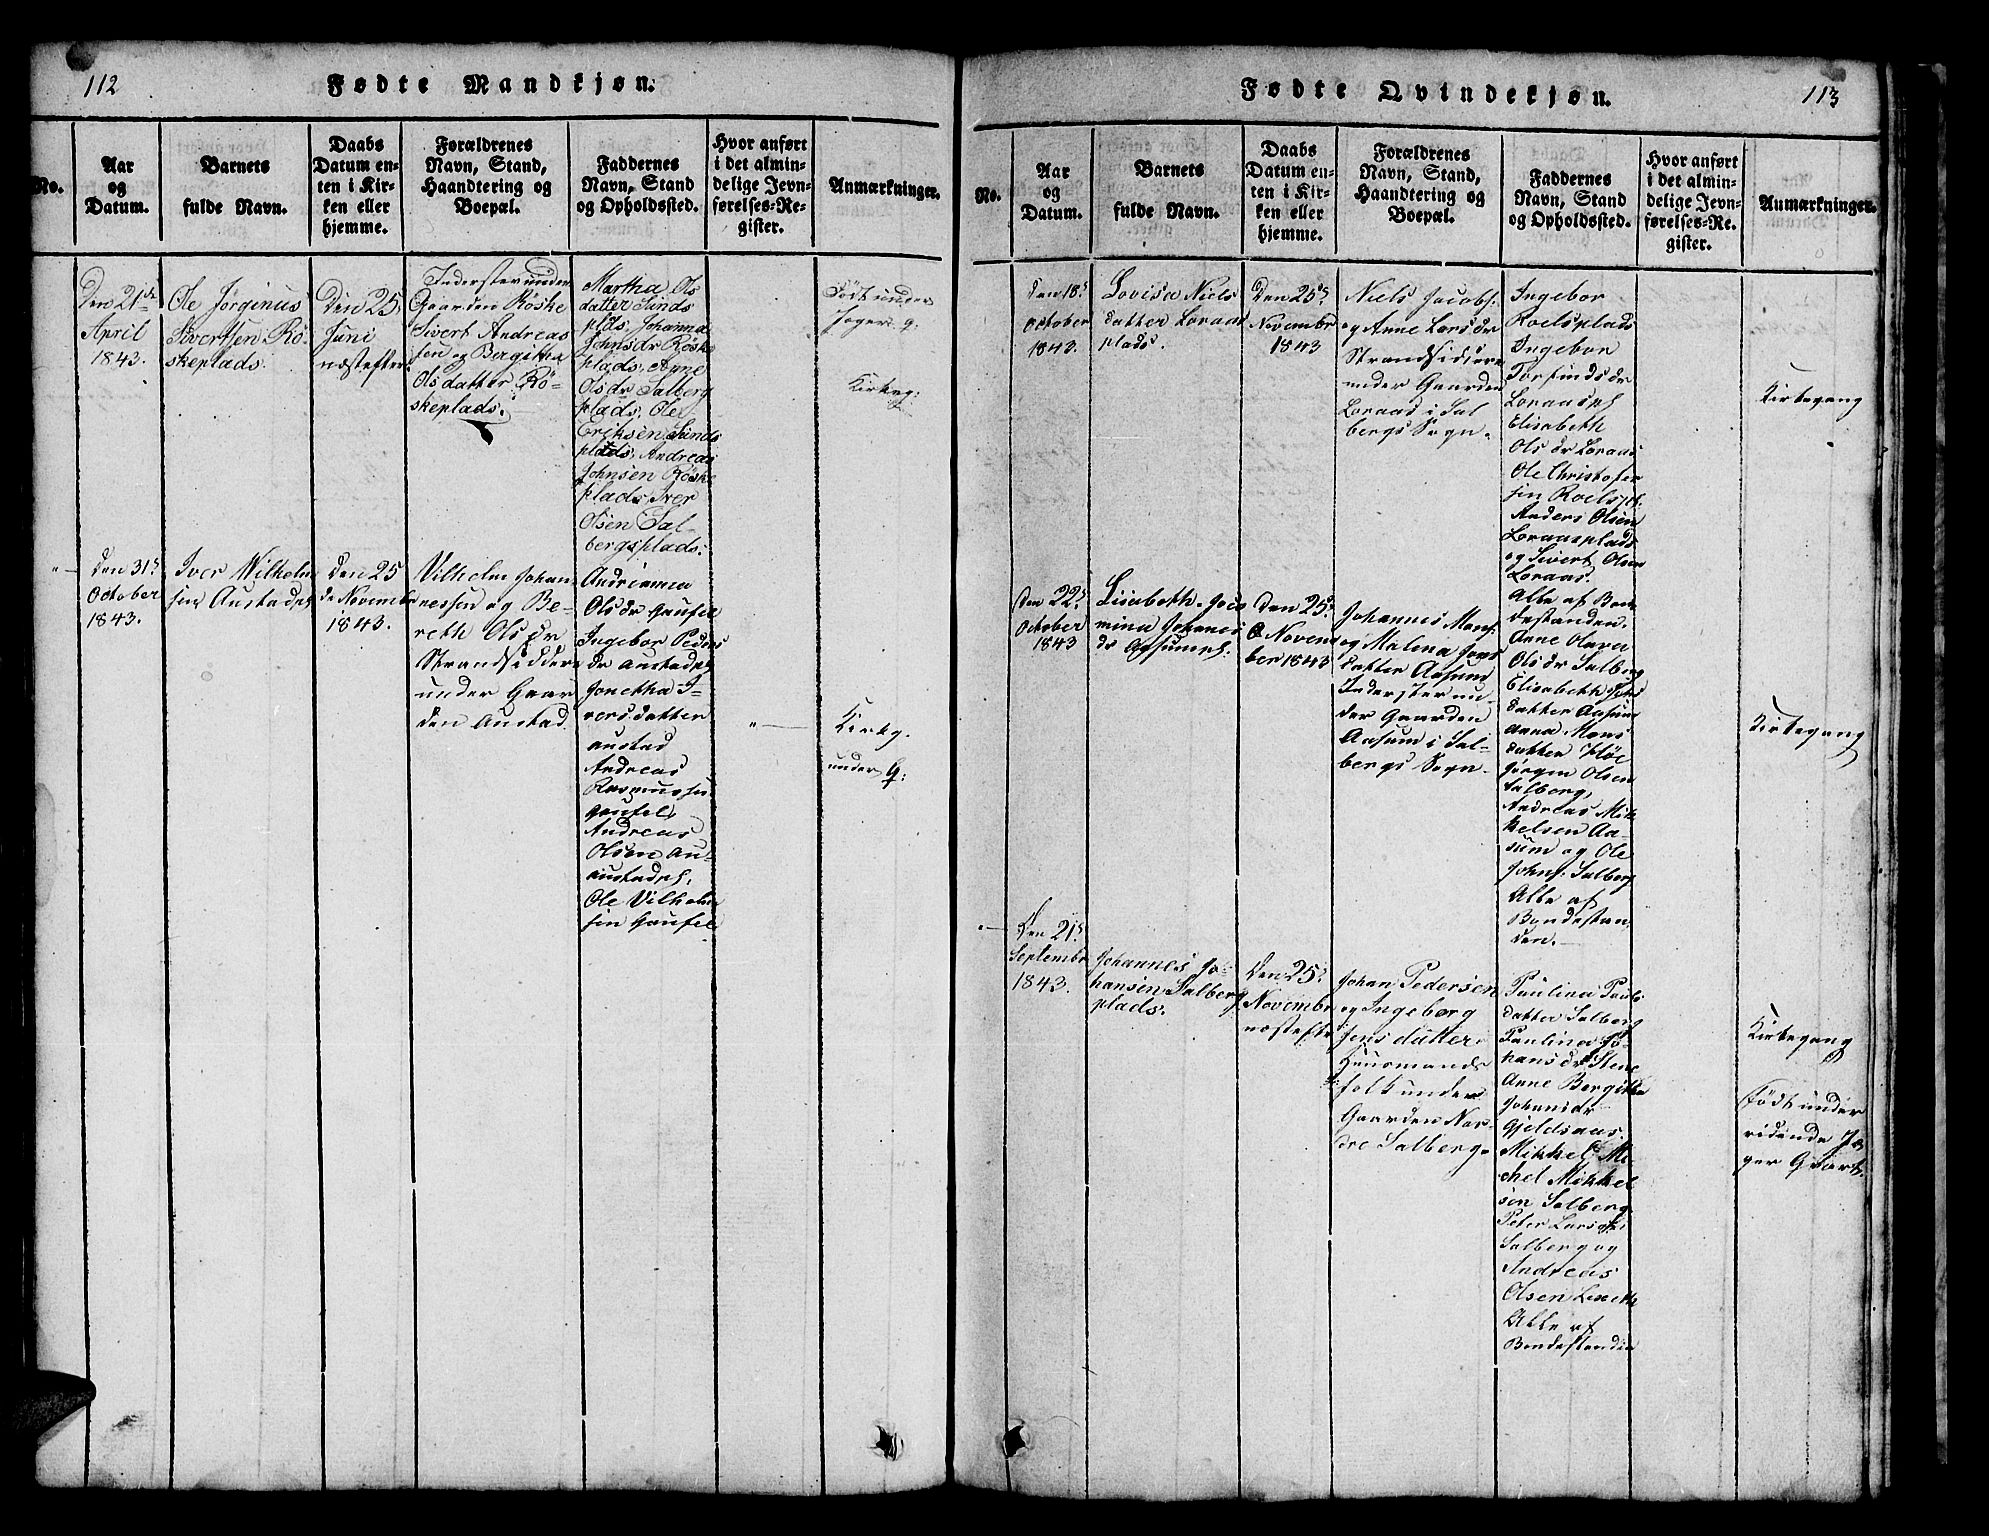 112
Fødte Mandkjøn.
No.
Aar
og
Datum.
Barnets
fulde Navn.
Daabs
Datum en-
ten i Kir-
ken eller
hjemme.
Forældrenes
Navn, Stand,
Haandtering og
Boepæl.
Faddernes
Navn, Stand
og Opholdssted.
Hvor anført
i det almin-
delige Jevn-
førelses-Re-
gister.
Anmærkninger.
Den 21de
April
1843.
Ole Jørginus
Sivertsen Rø
skeplads.
Den 25
Juni
næstefter
Inderster under
Gaarden Røske
Sivert Andreas
sen og Bergitha
Olsdatter Rø-
skeplads.
Martha Ols
datter Sunds
plds, Johanna
Johnsdr Røske
plads, Anne
Olsdr Salberg
plads, Ole
Eriksen Sunds
plads, Andreas
Johnsen Røske
plads, Iver
Olsen Sal-
bergsplads.
Født under
Kirkeg:
"
Den 31.
October
1843.
Iver Wilhelm
sen Austadpl
Den 25
de Novembr
1843.
Vilhelm Johan
nessen og Be-
reth Olsdr
Strandsidder
under Gaar
den Austad
Andrianna
Olsdr Gausel
Ingebor Peders
dr Austadpl
Jonetha I-
versdatter
austad
Andreas
Rasmussen
Gausel,
Andreas
Olsen Au-
austadpl,
Ole Vilhelm
sen Gausel
"
Kirkg.
under G:
Fødte Qvindekjøn.
113
No.
Aar
og
Datum.
Barnets
fulde Navn.
Daabs
Datum en-
ten i Kir-
ken eller
hjemme.
Forældrenes
Navn, Stand,
Haandtering og
Boepæl.
Faddernes
Navn, Stand
og Opholdssted.
Hvor anført
i det almin-
delige Jevn-
førelses-Re-
gister.
Anmærkninger.
Den 18.
October
1843.
Lovisa Niels
datter Loraas
plads.
Den 25.
Novembr
1843
Niels Jacobs.
og Anne Larsdr
Strandsiddere
under Gaarden
Loraas i Sal
bergs Sogn.
Ingebor
Roelsplads
Ingebor
Torfindsdr
Loraaspl
Elisabeth
Olsdr Loraas
Ole Christofer
sen Roelspl.
Anders Olsen
Loraasplads
og Sivert Olsen
Loraas.
Alle af Bon
destanden.
Kirkegang
Den 22.
October
1843
Lisabeth Jaco
mina Johanes
dr Aasumpl.
Den 25.
Novem
ber 1843
Johannes Mons.
og Malina Jons
datter Aasum
Inderster un-
der Gaarden
Aasum i Sal-
bergs Sogn.
Anne Olava
Olsdr Salberg
Elisabeth
datter Aasum
anna Mons
datter Kløe
Jørgen Olsen
Salberg,
Andreas Mik
kelsen Aa-
sum og Ole
Johns. Salberg
Alle af
Bondestan
den.
Kirkegang
"
Den 21.
Septembr
1843.
Johannes Jo
hansen Salberg
plads.
Den 25.
Novembr
næstefter
Johan Pedersen
og Ingeborg
Jensdatter
Huusmands
folk under
Gaarden Nor-
dre Salberg.
Paulina Pauls
datter Salberg
Paulina Jo-
hansdr Stene
Anne Bergitha
Johansdr
Gjeldsaas.
Mikkel Mi-
chel Mikkel
sen Salberg.
Peter Larsen
Salberg og
Andreas
Olsen
Alle af
Bondestanden
Kirkegang
Født under
ridende Jæ
ger Qvart.